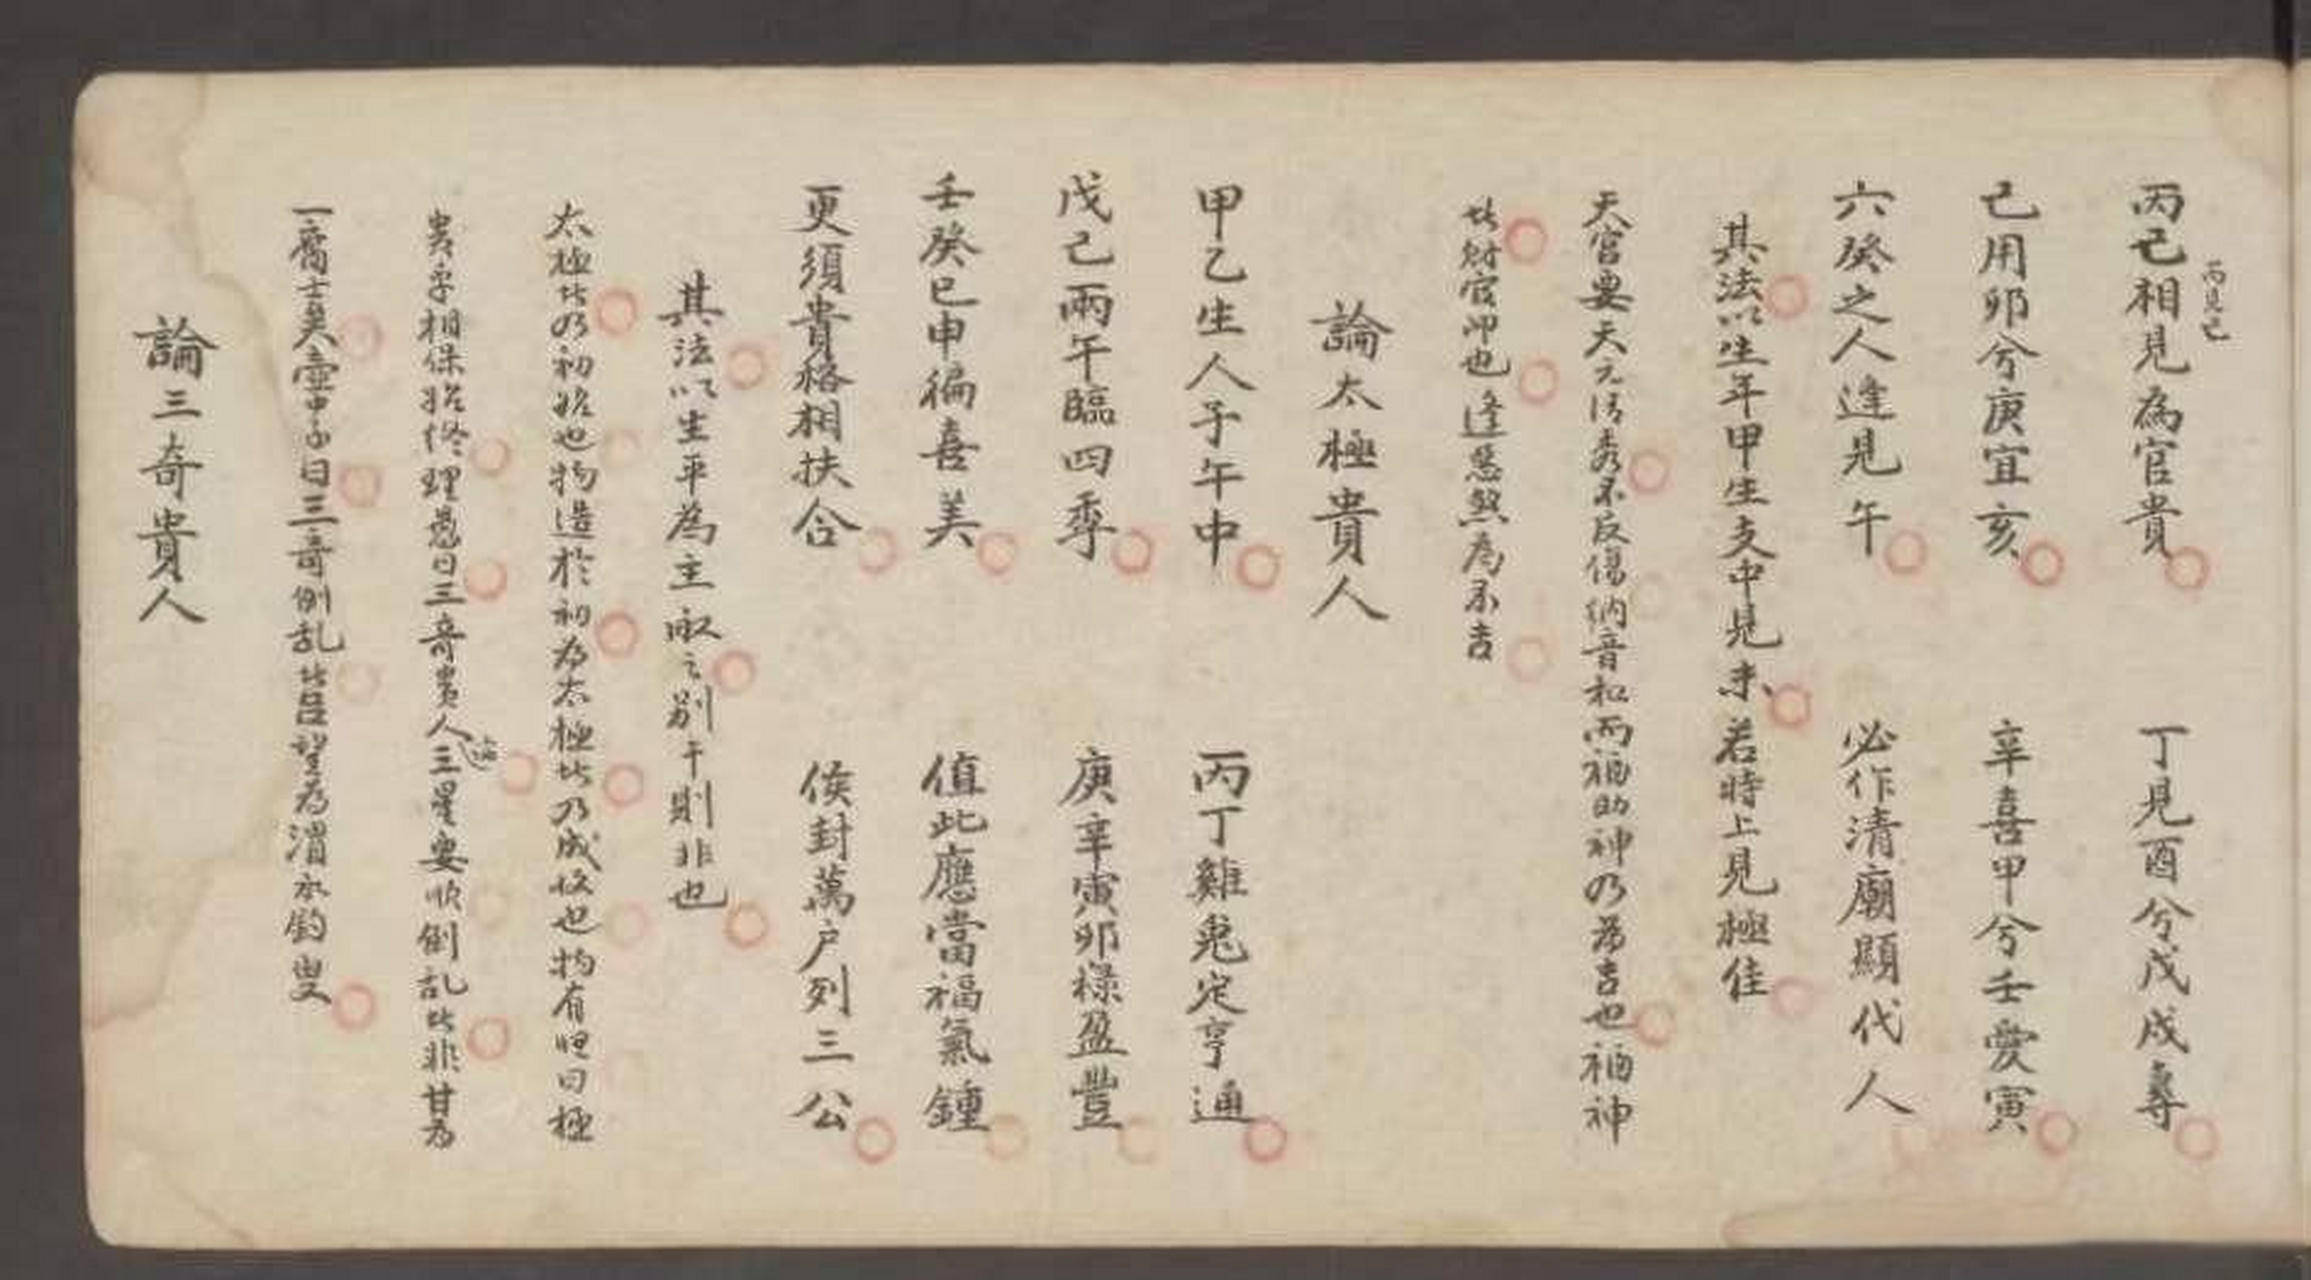 丙己相見為官貴　丁見酉兮戊戌尋
丙見巳
己用卯兮庚宜亥　辛喜甲兮壬愛寅
六癸之人逢見午　必作清廟顯代人
其法以生年甲生支中見未若時上見極佳
天官要天元清秀不反傷納音和而福助神乃為吉也福神
此財官印也逢惡煞為不吉
論太極貴人
甲乙生人子午中　丙丁雞兔定亨通
戊己兩午臨四季　庚辛寅卯祿盈豐
壬癸巳申徧喜美　值此應當福氣鍾
更須貴格相扶合　侯封萬户列三公
其法以生平為主取之別干則非也
太極此乃初始也物造於初為太極此乃成收也物有曰極
貴乎相保始終理愚曰三奇貴人三星要順倒乱此非甘為
論
一腐士矣壺中子曰三奇倒乱此吕望为渭水釣叟
論三奇貴人